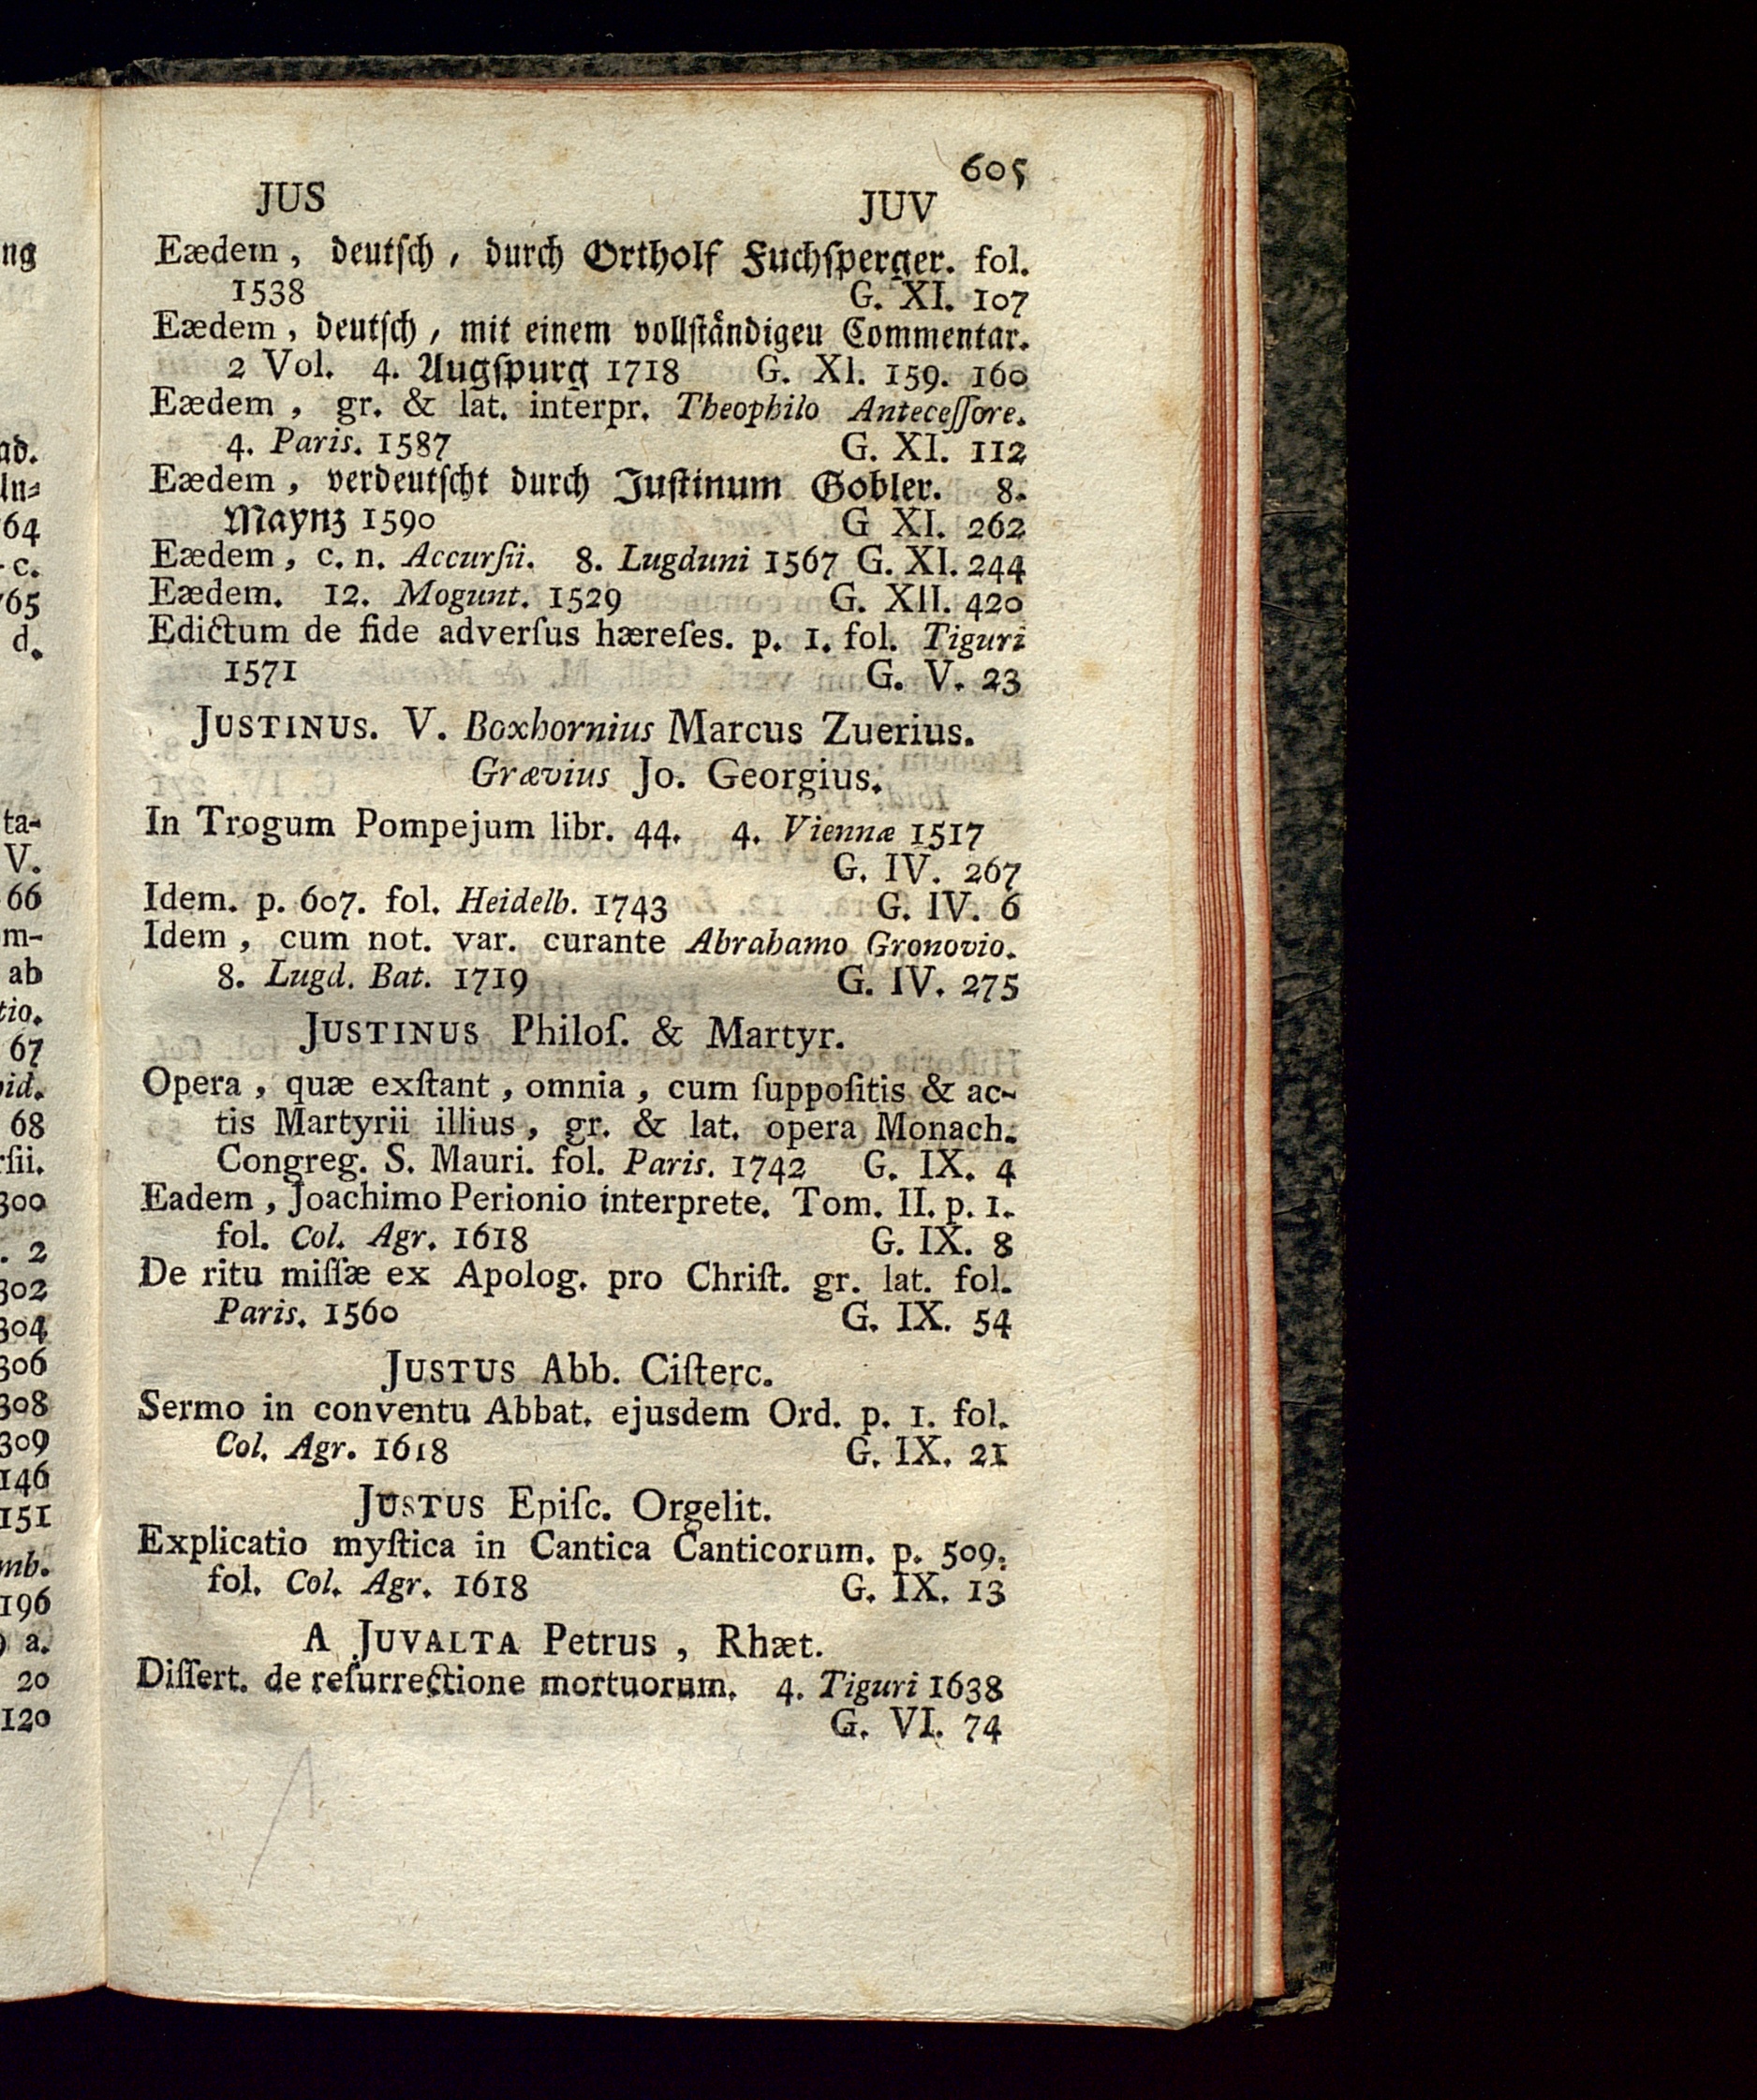 605
JUS JUV
Eædem, deutſch, durch Ortholf Fuchſperger. fol.
1538 G. XI. 107
Eædem, deutſch, mit einem vollſtändigeu Commentar.
2 Vol. 4. Augſpurg 1718 G. Xl. 159. 160
Eædem, gr. & lat. interpr. Theophilo Anteceſſore.
4. Paris. 1587 G. XI. 112
Eædem, verdeutſcht durch Juſtinum Gobler. 8.
Maynz 1590 G XI. 262
Eædem, c. n. Accurſii. 8. Lugduni 1567 G. XI. 244
Eædem. 12. Mogunt. 1529 G. XII. 420
Edictum de fide adverſus hæreſes. p. 1. fol. Tiguri
1571 G. V. 23
JUSTINUS. V. Boxhornius Marcus Zuerius.
Grævius Jo. Georgius.
In Trogum Pompejum libr. 44. 4. Viennæ 1517
G. IV. 267
Idem. p. 607. fol. Heidelb. 1743 G. IV. 6
Idem, cum not. var. curante Abrahamo Gronovio.
8. Lugd. Bat. 1719 G. IV. 275
JUSTINUS Philoſ. & Martyr.
Opera, quæ exſtant, omnia, cum ſuppoſitis & ac-
tis Martyrii illius, gr. & lat. opera Monach.
Congreg. S. Mauri. fol. Paris. 1742 G. IX. 4
Eadem, Joachimo Perionio interprete. Tom. II. p. 1.
fol. Col. Agr. 1618 G. IX. 8
De ritu miſſæ ex Apolog. pro Chriſt. gr. lat. fol.
Paris. 1560 G. IX. 54
JUSTUS Abb. Ciſterc.
Sermo in conventu Abbat. ejusdem Ord. p. 1. fol.
Col. Agr. 1618 G. IX. 21
JUSTUS Epiſc. Orgelit.
Explicatio myſtica in Cantica Canticorum. p. 509.
fol. Col. Agr. 1618 G. IX. 13
A JUVALTA Petrus, Rhæt.
Diſſert. de reſurrectione mortuorum. 4. Tiguri 1638
G. VI. 74